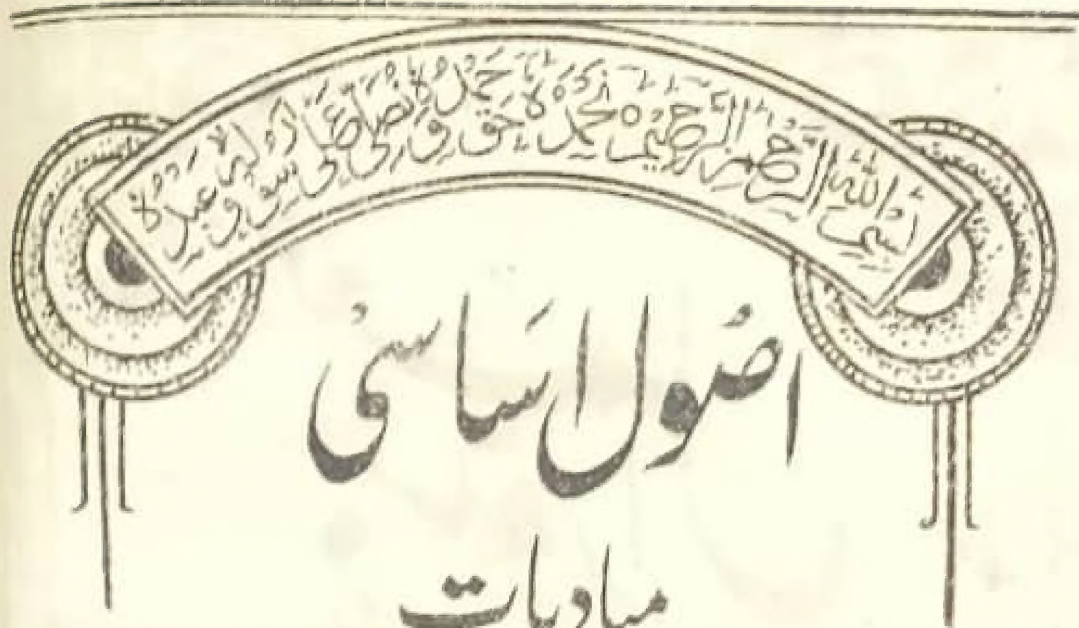 بسم الله الرحمن الرحيم نحمده حق حمده و نصلی علی رسوله و عبده
اصول اساسی
مبادیات